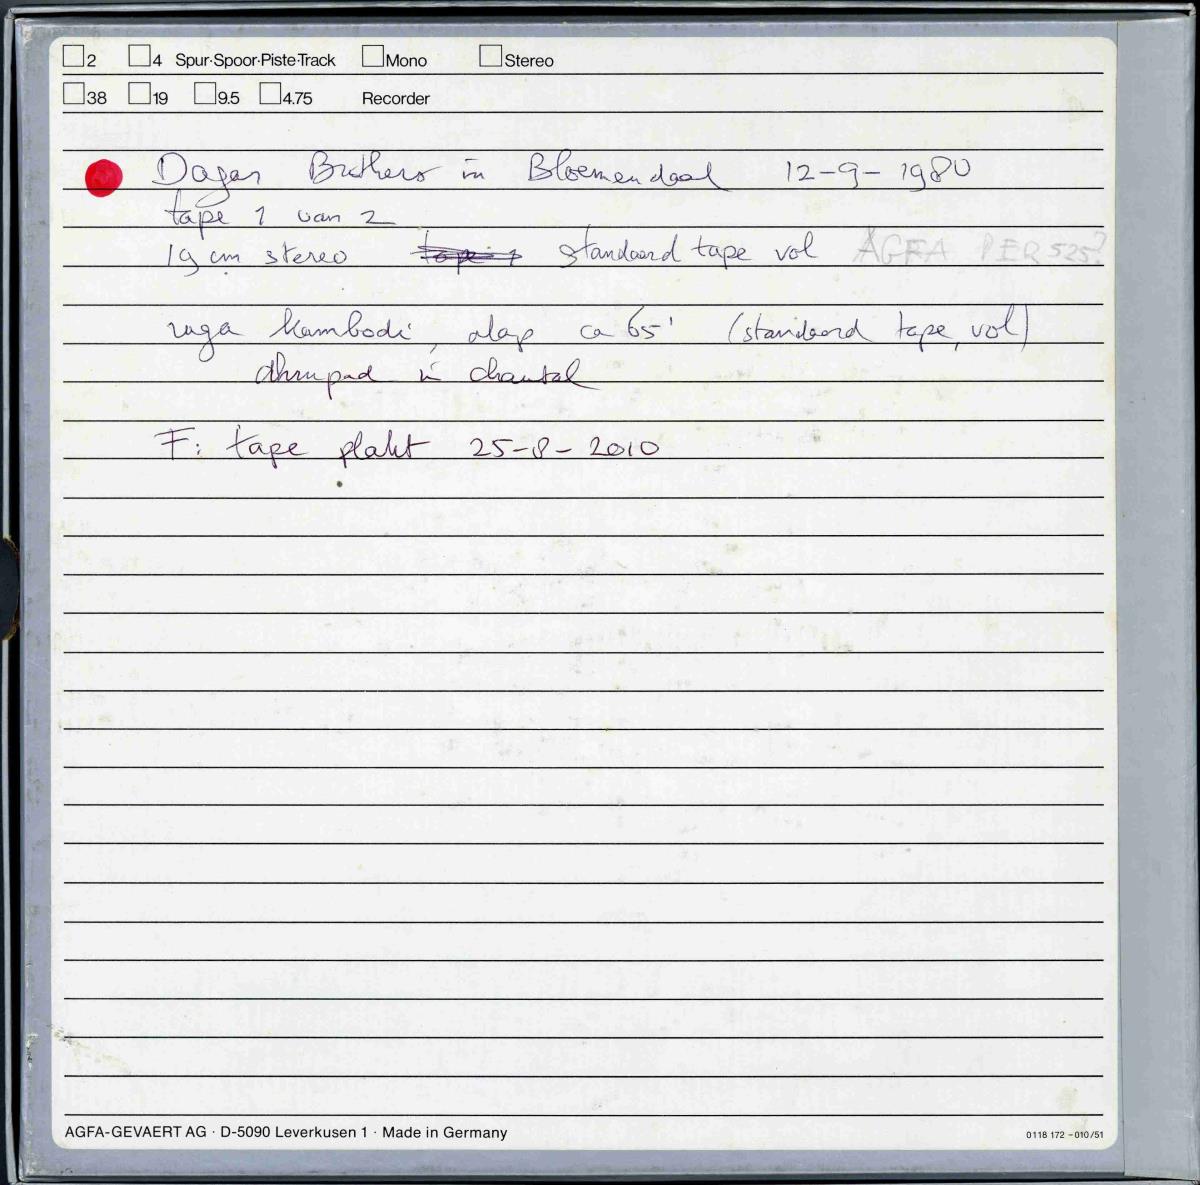 2 4 Spur·Spoor·Piste·Track Mono Stereo
38 19 9.5 4.75 Recorder
Dagar Brothers in Bloemendaal 12-9-1980
tape 1 van 2
19 cm stereo tape 1 standaard tape vol AGFA PER 525?
raga kambodi, alap ca 65' (standaard tape, vol)
dhrupad in chautal
F: tape plakt 25-8-2010
AGFA-GEVAERT AG · D-5090 Leverkusen 1 · Made in Germany
0118 172 - 010/51